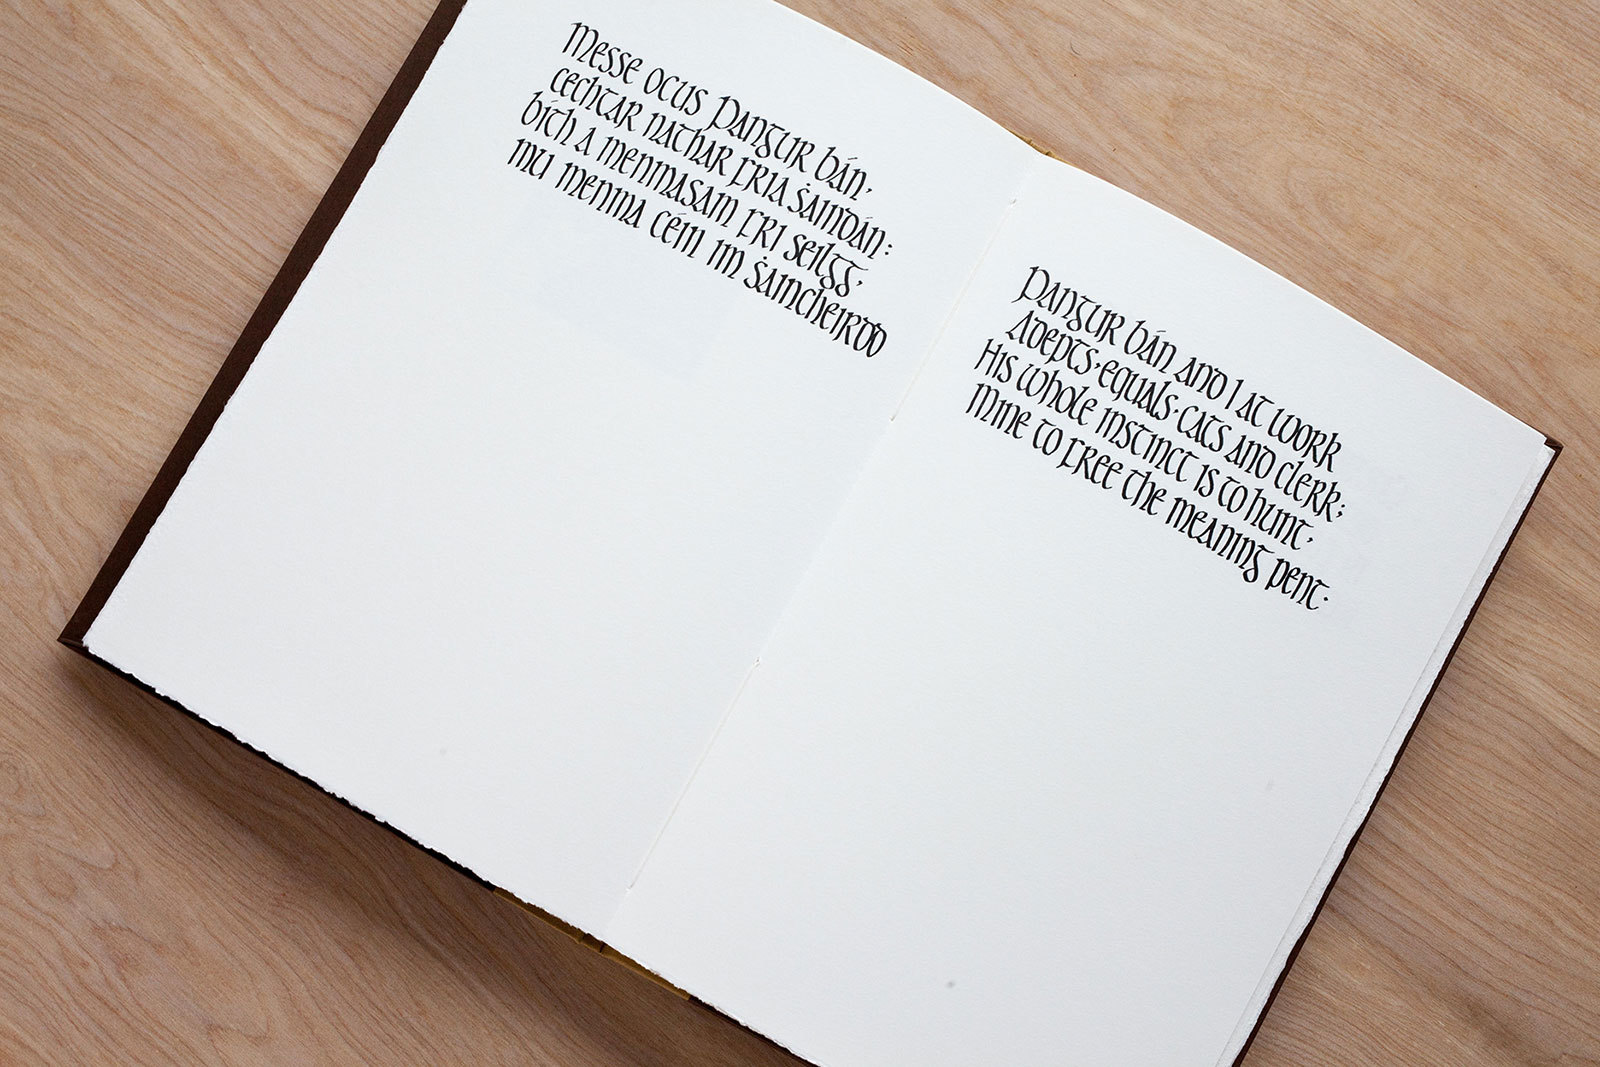 Messe ocus Pangur bán,
cechtar nathar fria ṡaindán:
bíth a menmasam fri seilgg,
mu menma céin im ṡaincheirdd
Pangur bán and I at work
Adepts, equals, cats and clerk;
His whole instinct is to hunt,
Mine to free the meaning pent.